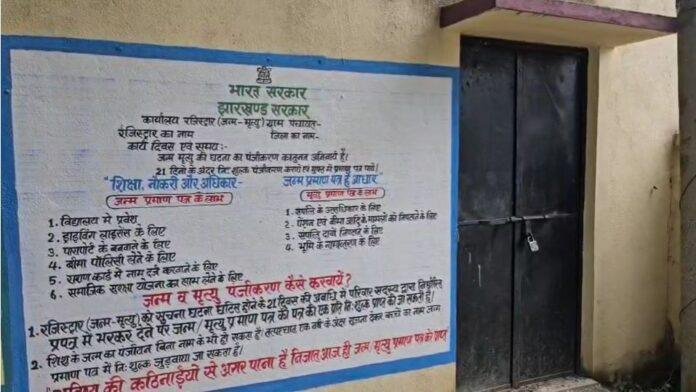 भारत सरकार
झारखण्ड सरकार
कार्यालय रजिस्ट्रार (जन्म-मृत्यु) ग्राम पंचायत-
रजिस्ट्रार का नाम जिला का नाम-
कार्य दिवस एवं समय:-
जन्म मृत्यु की घटना का पंजीकरण कानूनन अनिवार्य है।
21 दिनों के अंदर निः शुल्क पंजीकरण कराएं एवं मुफ्त में प्रमाण पत्र पायें।
"शिक्षा, नौकरी और अधिकार- जन्म प्रमाण पत्र है आधार"
जन्म प्रमाण पत्र के लाभ
1. विद्यालय में प्रवेश
2. ड्राइविंग लाइसेंस के लिए
3. पासपोर्ट के बनवाने के लिए
4. बीमा पॉलिसी लेने के लिए
5. राशन कार्ड में नाम दर्ज करवाने के लिए
6. समाजिक सुरक्षा योजना का लाभ लेने के लिए।
मृत्यु प्रमाण पत्र के लाभ
1. संपत्ति के उत्तराधिकार के लिए
2. पेंशन एवं बीमा आदि के मामलों को निपटाने के लिए
3. संपत्ति दावों निपटाने के लिए
4. भूमि के नामांतरण के लिए
जन्म व मृत्यु पंजीकरण कैसे करवायें?
1. रजिस्ट्रार (जन्म-मृत्यु) को सूचना घटना घटित होने के 21 दिवस की अवधि में परिवार सदस्य द्वारा निर्धारित
प्रपत्र में भरकर देने पर जन्म/मृत्यु प्रमाण पत्र की एक प्रति निः शुल्क प्राप्त की जा सकती है।
2. शिशु के जन्म का पंजीयन बिना नाम के भी हो सकता है। तत्पश्चात एक वर्ष के अंदर सूचना देकर बच्चे का नाम जन्म
प्रमाण पत्र में निः शुल्क जुड़वाया जा सकता है।
की कठिनाईयों से अगर पाना है निजात, आज ही जन्म, मृत्यु प्रमाण पत्र करें प्राप्त